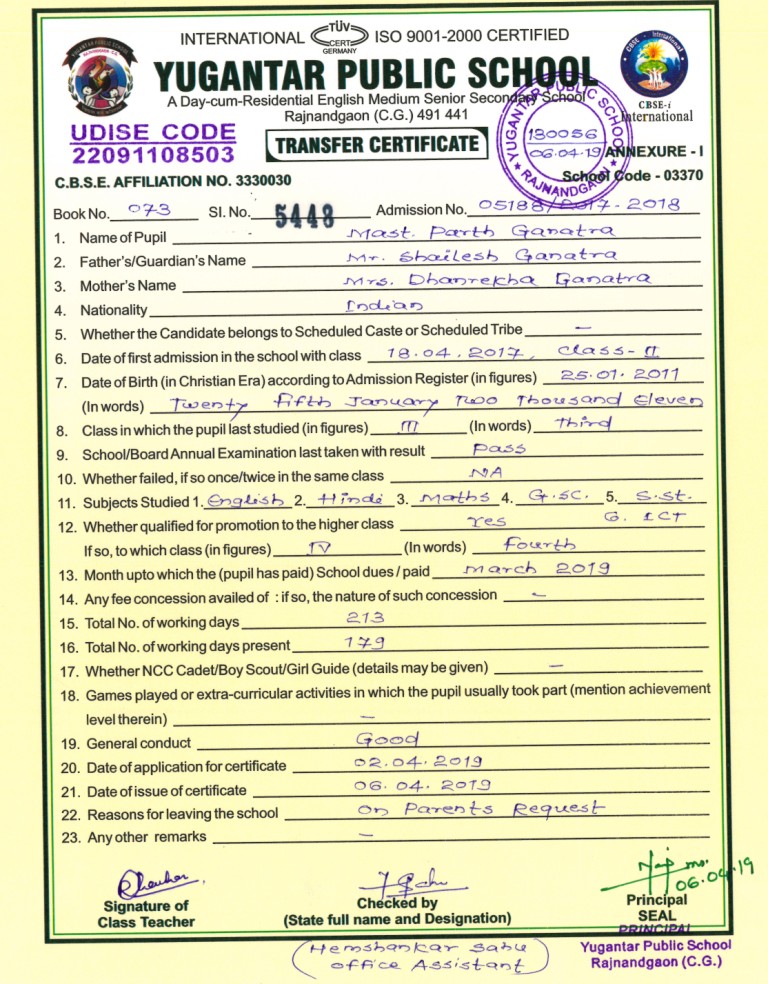 INTERNATIONAL TÜV CERT GERMANY ISO 9001-2000 CERTIFIED
YUGANTAR PUBLIC SCHOOL
A Day-cum-Residential English Medium Senior Secondary School
Rajnandgaon (C.G.) 491 441
CBSE-i
International
UDISE CODE
22091108503
TRANSFER CERTIFICATE
YUGANTAR PUBLIC SCHOOL
130056
06.04.19
★ RAJNANDGAON ★
ANNEXURE - I
C.B.S.E. AFFILIATION NO. 3330030
School Code - 03370
Book No. 073 Sl. No. 5448 Admission No. 05188/2017-2018
1. Name of Pupil Mast. Parth Ganatra
2. Father's/Guardian's Name Mr. Shailesh Ganatra
3. Mother's Name Mrs. Dhanrekha Ganatra
4. Nationality Indian
5. Whether the Candidate belongs to Scheduled Caste or Scheduled Tribe –
6. Date of first admission in the school with class 18.04.2017, Class-II
7. Date of Birth (in Christian Era) according to Admission Register (in figures) 25.01.2011
(In words) Twenty fifth January Two Thousand Eleven
8. Class in which the pupil last studied (in figures) III (In words) Third
9. School/Board Annual Examination last taken with result Pass
10. Whether failed, if so once/twice in the same class NA
11. Subjects Studied 1. English 2. Hindi 3. Maths 4. G.SC. 5. S.St.
6. ICT
12. Whether qualified for promotion to the higher class Yes
If so, to which class (in figures) IV (In words) Fourth
13. Month upto which the (pupil has paid) School dues / paid March 2019
14. Any fee concession availed of : if so, the nature of such concession –
15. Total No. of working days 213
16. Total No. of working days present 179
17. Whether NCC Cadet/Boy Scout/Girl Guide (details may be given) –
18. Games played or extra-curricular activities in which the pupil usually took part (mention achievement
level therein) –
19. General conduct Good
20. Date of application for certificate 02.04.2019
21. Date of issue of certificate 06.04.2019
22. Reasons for leaving the school On Parents Request
23. Any other remarks –
06.04.19
Signature of
Class Teacher
Checked by
(State full name and Designation)
Principal
SEAL
PRINCIPAL
Yugantar Public School
Rajnandgaon (C.G.)
(Hemshankar Sahu
Office Assistant)